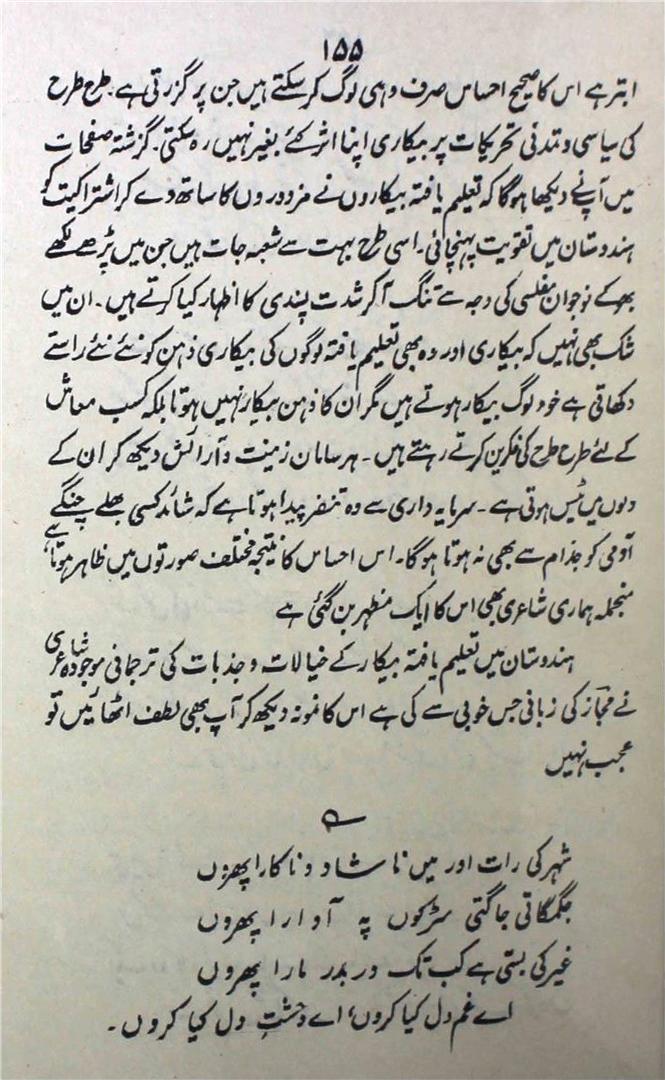 ۱۵۵
ابتر ہے اس کا صحیح احساس صرف وہی لوگ کر سکتے ہیں جن پر گزرتی ہے۔ طرح طرح
کی سیاسی و تمدنی تحریکات پر بیکاری اپنا اثر کئے بغیر نہیں رہ سکتی۔ گزشتہ صفحات
میں آپنے دیکھا ہوگا کہ تعلیم یافتہ بیکاروں نے مزدوروں کا ساتھ دے کر اشتراکیت کو
ہندوستان میں تقویت پہنچائی۔ اسی طرح بہت سے شعبہ جات ہیں جن میں پڑھے لکھے
بھوکے نوجوان مفلسی کی وجہ سے تنگ آ کر شدت پسندی کا اظہار کیا کرتے ہیں۔ ان میں
شک بھی نہیں کہ بیکاری اور وہ بھی تعلیم یافتہ لوگوں کی بیکاری ذہن کو نئے نئے راستے
دکھاتی ہے خود لوگ بیکار ہوتے ہیں مگر ان کا ذہن بیکار نہیں ہوتا بلکہ کسب معاش
کے لئے طرح طرح کی فکریں کرتے رہتے ہیں۔ ہر سامان زینت و آرائش دیکھ کر ان کے
دلوں میں ٹیس ہوتی ہے۔ سرمایہ داری سے وہ تنفر پیدا ہوتا ہے کہ شائد کسی بھلے چنگے
آدمی کو جذام سے بھی نہ ہوتا ہوگا۔ اس احساس کا نتیجہ مختلف صورتوں میں ظاہر ہوتا ہے،
منجملہ ہماری شاعری بھی اس کا ایک مظہر بن گئی ہے
ہندوستان میں تعلیم یافتہ بیکار کے خیالات و جذبات کی ترجمانی موجودہ شاعری
نے مجاز کی زبانی جس خوبی سے کی ہے اس کا نمونہ دیکھ کر آپ بھی لطف اٹھائیں تو
عجب نہیں
شہر کی رات اور میں ناشاد و ناکارا پھروں
جگمگاتی جاگتی سڑکوں پہ آوارا پھروں
غیر کی بستی ہے کب تک در بدر مارا پھروں
اے غم دل کیا کروں، اے وحشتِ دل کیا کروں۔